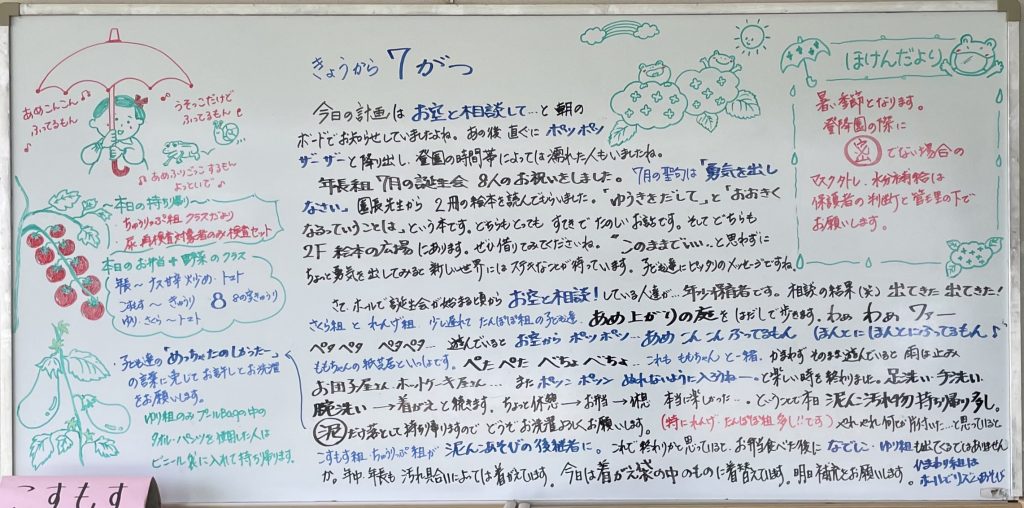 あめこんこん♪
ふってるもん
♪
うそっこだけど
ふってるもん
♪あめふりごっこするもん
よっといで♪
～本日の持ち帰り～
・ちゅうりっぷ組 クラスだより
・尿再検査対象者のみ検査セット
本日のお弁当+野菜のクラス
年長～ナス 炒め・トマト
こすもす～きゅうり
ゆり・さくら～トマト
8 8の字きゅうり
子ども達の「めっちゃたのしかったー」
の言葉に免じてお許しとお洗濯
をお願いします。
ゆり組のみプールBagの中の
タオル・パンツを使用した人は
ビニール袋に入れて持ち帰ります。
こすもす
きょうから 7がつ
今日の計画はお空と相談して…と朝の
ボードでお知らせしていましたよね。あの後直ぐにポツポツ
ザーザーと降り出し、登園の時間帯によっては濡れた人もいましたね。
年長組7月の誕生会 8人のお祝いをしました。7月の聖句は「勇気を出し
なさい」園長先生から2冊の絵本を読んでもらいました。「ゆうきをだして」と「おおきく
なるっていうことは」という本です。どちらもとっても すてきで たのしいお話です。そしてどちらも
2F 絵本の広場にあります。ぜひ借りてみてくださいね。"このままでいい…と思わずに
ちょっと勇気を出してみると新しい世界にはステキなことが待っています。子ども達にピッタリのメッセージですね。
さて、ホールで誕生会が始まる頃からお空と相談!している人達が…年少・保育者です。相談の結果(笑)出てきた出てきた!
さくら組とれんげ組、少し遅れてたんぽぽ組の子ども達、あめ上がりの庭をはだしで歩きます。わぁ わぁ ワァー
ペタペタ ペタペタ… 遊んでいるとお空からポツポツ…あめこんこんふってるもん ほんとにほんとにふってるもん♪
ももちゃんの紙芝居といっしょです。ぺたぺた べちょべちょ これもももちゃんと一緒。かまわずそのまま遊んでいると雨は止み
お団子屋さん、ホットケーキ屋さん… またポツン ポツン ぬれないように入ろうねー。と楽しい時を終わりました。足洗い・手洗い・
腕洗い→着がえと続きます。ちょっと休憩→お弁当→休憩 本当に楽しかった…。というコトで本日 泥んこ汚れ物 持ち帰り多し。
泥だけ落として持ち帰りますので どうぞお洗濯よろしくお願いします。(特にれんげ・たんぽぽ組多し!!です)やれやれ何とか片付いた…と思っていると
こすもす組・ちゅうりっぷ組が 泥んこあそびの後継者に。これで終わりかと思っていると、お弁当食べた後に なでしこ・ゆり組も出てくるではありません
か。年中・年長も汚れ具合によっては着がえています。今日は着がえ袋の中のものに着替えています。明日補充をお願いします。
ひまわり組は
ホールでリズムあそび
ほけんだより
暑い季節となります。
登降園の際に
密でない場合の
マスク外し、水分補給は
保護者の判断と管理の下で
お願いします。